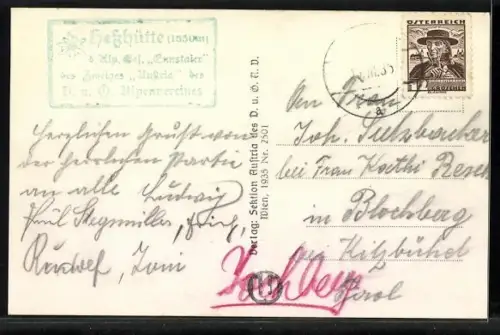 Heßhütte (1699m)
d. Alp. Ges. „Ennstaler"
des Zweiges „Austria" des
D. u. Ö. Alpenvereines
Herzlichen Gruß von
der herrlichen Partie
an alle Ludwig
Paul Stegmüller, Erich,
Rudolf, Toni
Verlag: Sektion Austria des D. u. Ö. A. V.
Wien, 1935 Nr. 2501
ÖSTERREICH
GROSCHEN
35
a
An Frau
Joh. Sulzbacher
bei Frau Kathi Resch
in Blochberg
bei Kitzbühel
Tirol
Jochberg